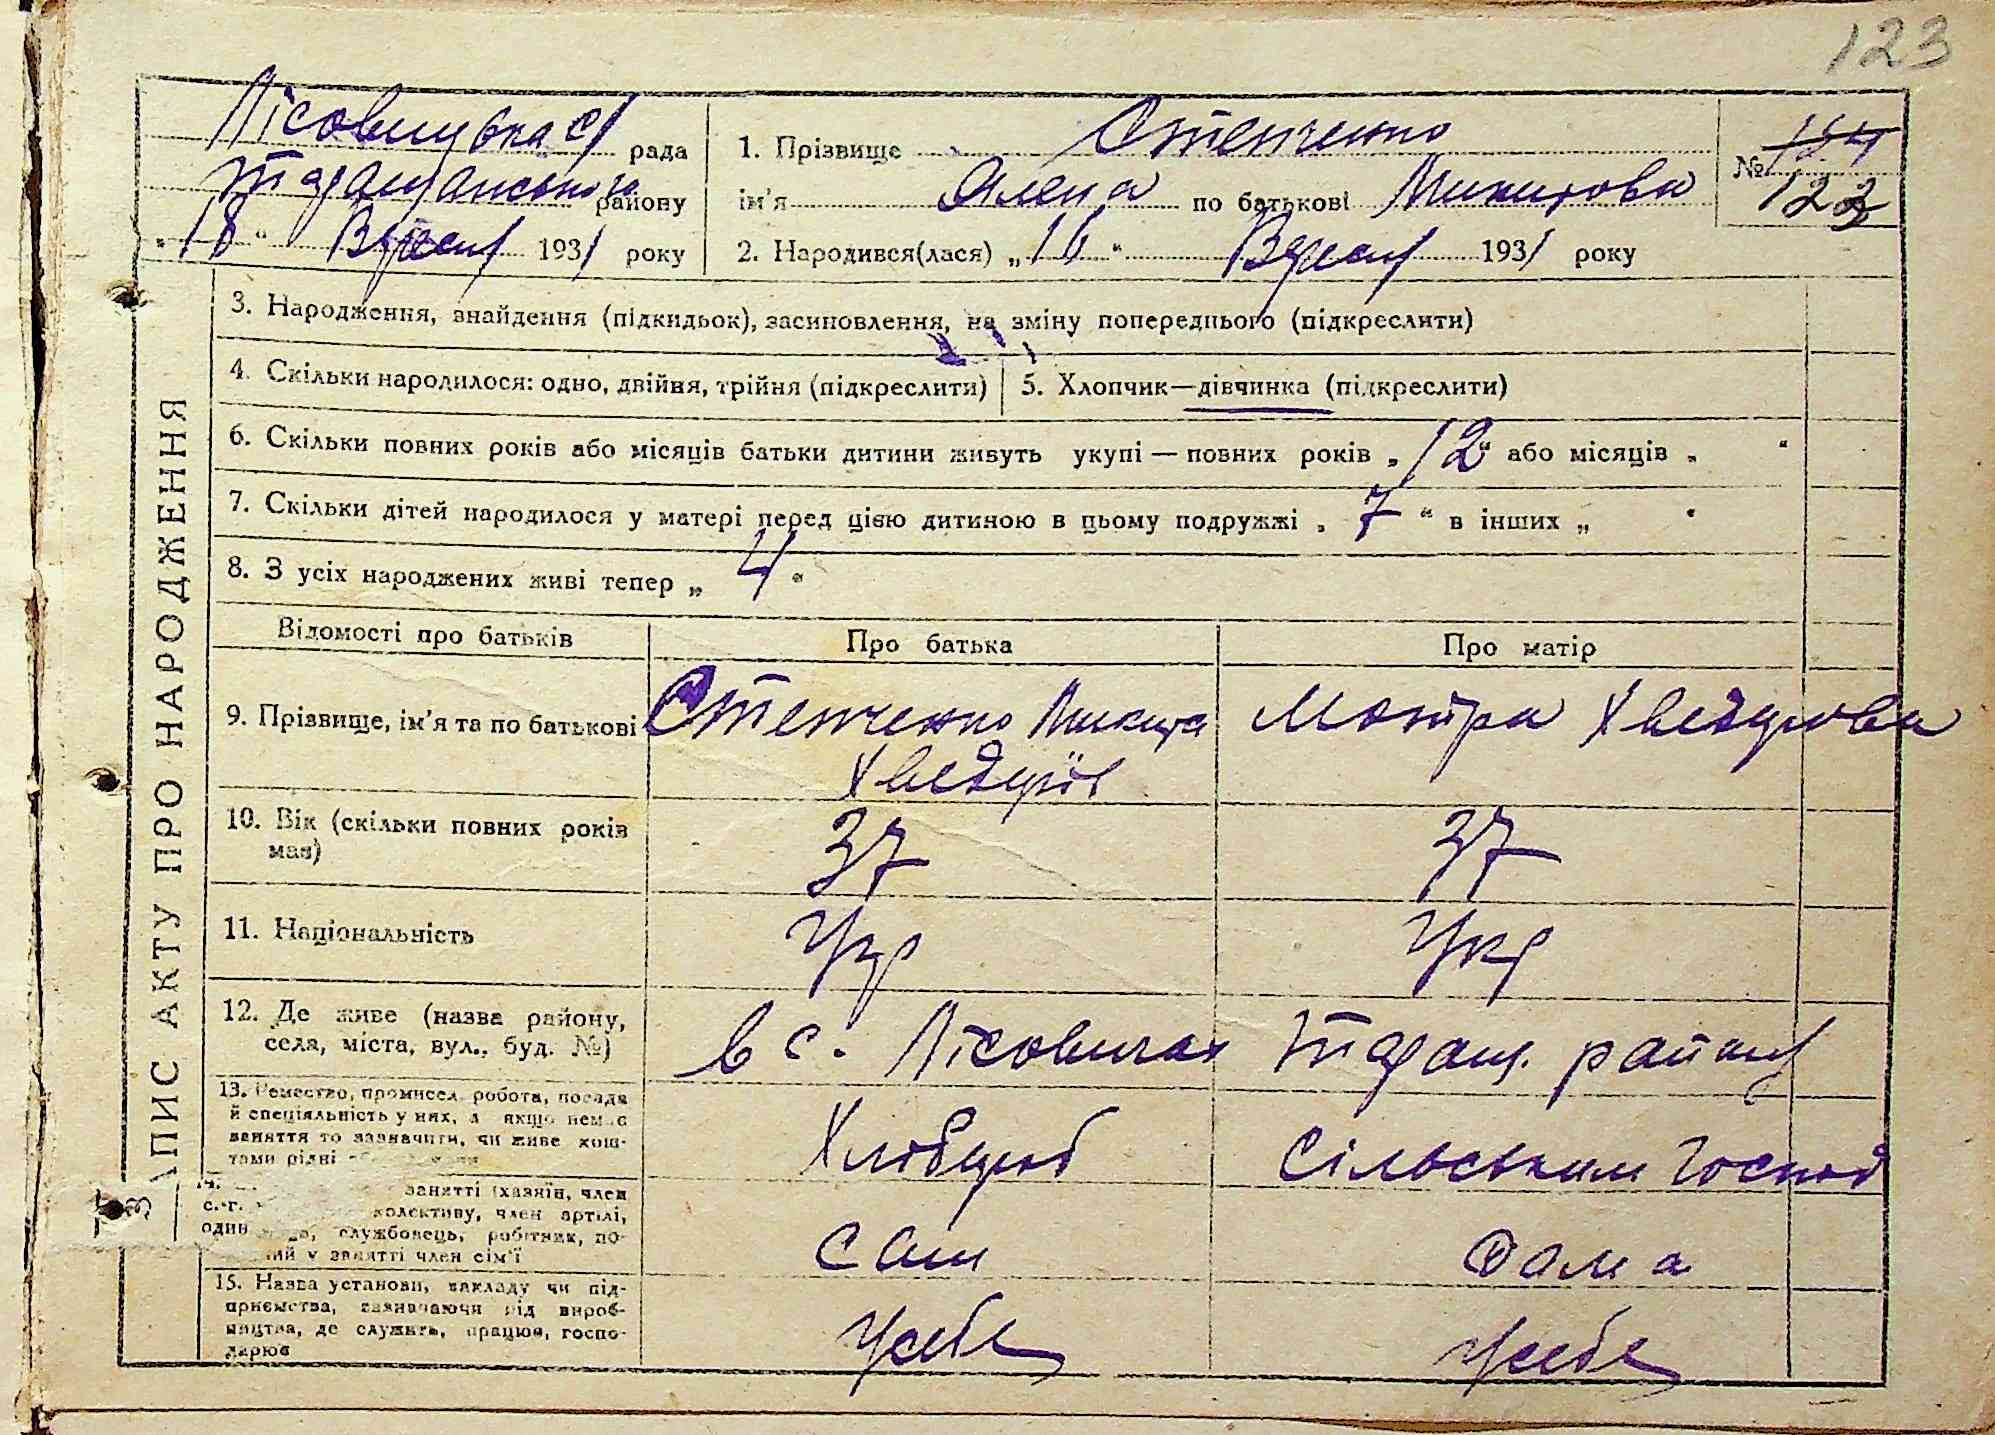 123
Лісовицька с/ рада
Таращанського району
„ 18 “ Вересн 1931 року
1. Прізвище Степченко
ім'я Олена по батькові Микитова
2. Народився(лася) „ 16 “ Вересн 1931 року
№ 124
122
3. Народження, знайдення (підкидьок), засиновлення, на зміну попереднього (підкреслити)
4. Скільки народилося: одно, двійня, трійня (підкреслити)
5. Хлопчик—дівчинка (підкреслити)
6. Скільки повних років або місяців батьки дитини живуть укупі — повних років „ 12 “ або місяців „ “
7. Скільки дітей народилося у матері перед цією дитиною в цьому подружжі „ 7 “ в інших „ “
8. З усіх народжених живі тепер „ 4 “
ЗАПИС АКТУ ПРО НАРОДЖЕННЯ
Відомості про батьків Про батька Про матір
9. Прізвище, ім'я та по батькові Степченко Микита Мотра Хведорова
Хведорів
10. Вік (скільки повних років 37 37
має)
11. Національність Укр Укр
12. Де живе (назва району, в с. Лісовичах Таращ. району
села, міста, вул., буд. №)
13. Ремество, промисел, робота, посада
й спеціяльність у них, а якщо немає Хлібороб Сільським господ
заняття то зазначити, чи живе кош-
тами рідні
занятті (хазяїн, член
с.-г. колективу, член артілі,
службовець, робітник, по- сам дома
ний у занятті член сім'ї
15. Назва установи, закладу чи під-
приємства, зазначаючи рід вироб- у себе у себе
ництва, де служить, працює, госпо-
дарює